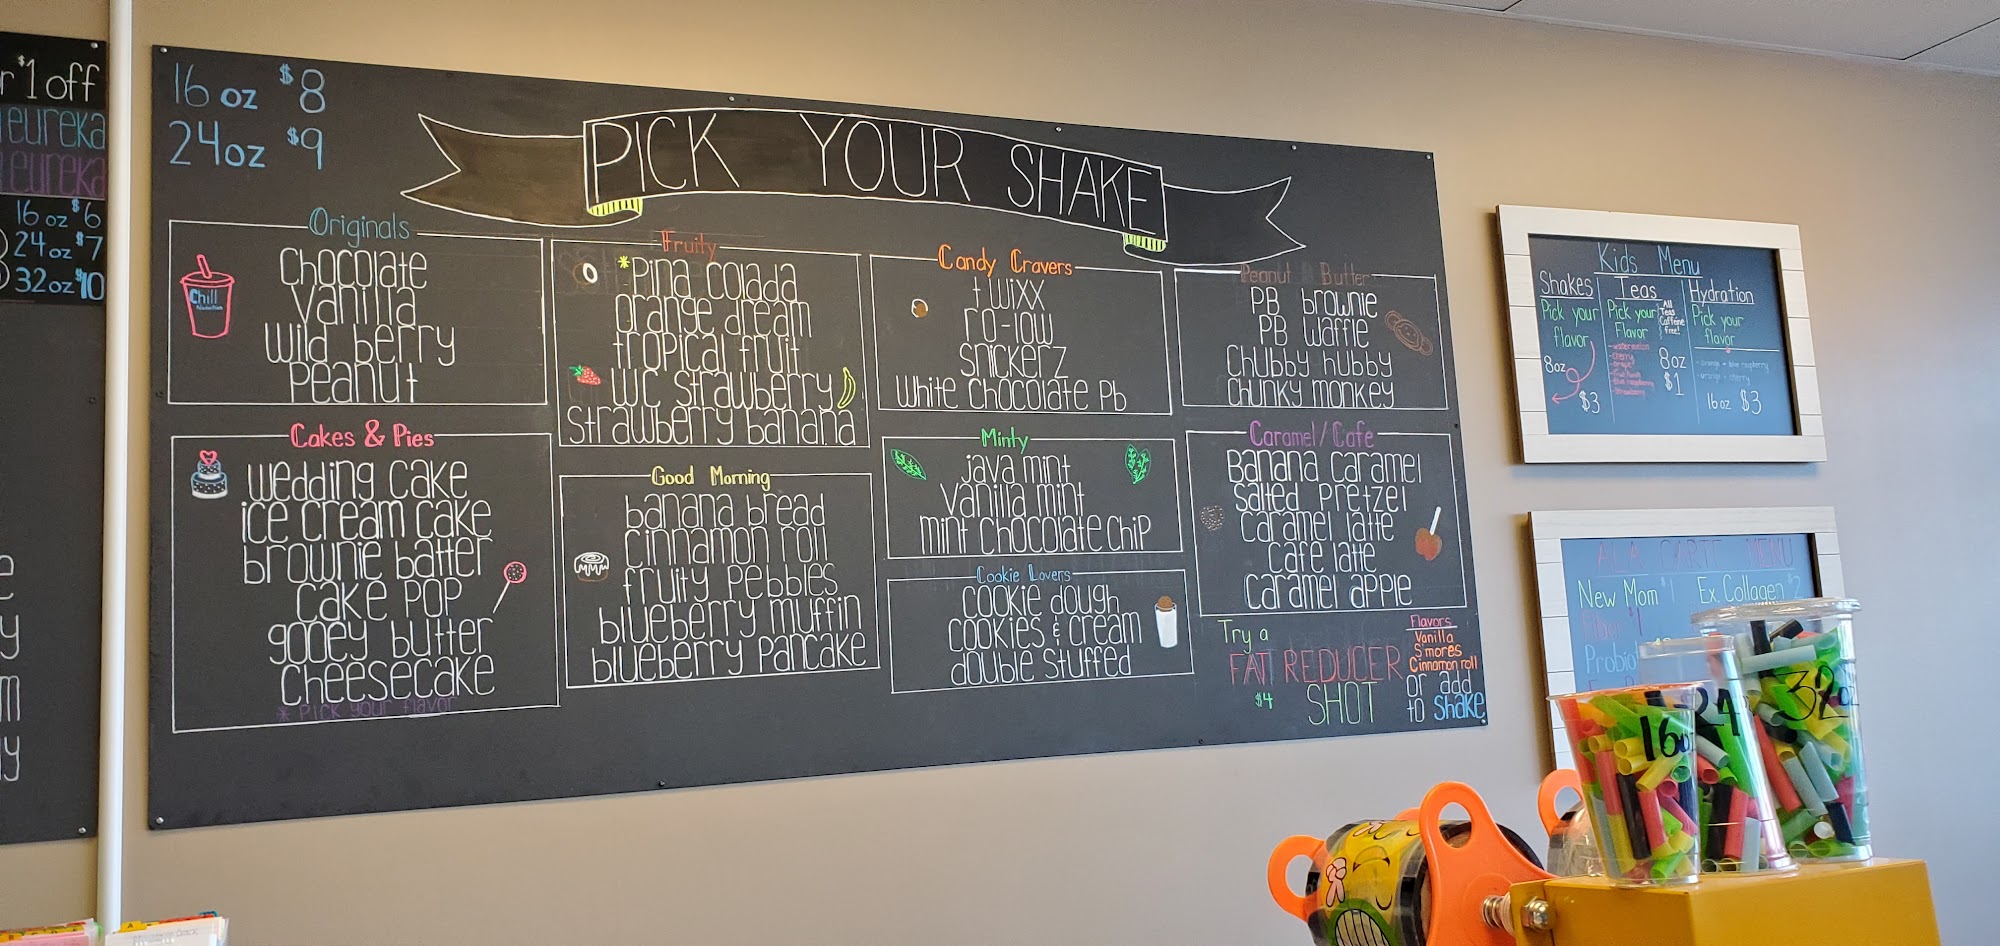 $1 off
eureka
eureka
16 oz $6
24 oz $7
32 oz $10
16 oz $8
24 oz $9
PICK YOUR SHAKE
Originals
Chocolate
Vanilla
Wild berry
Peanut
Chill
Cakes & Pies
wedding cake
ice cream cake
brownie batter
cake pop
gooey butter
cheesecake
* Pick your flavor
Fruity
*Pina colada
orange dream
tropical fruit
WC strawberry
strawberry banana
Good Morning
banana bread
cinnamon roll
fruity pebbles
blueberry muffin
blueberry pancake
Candy Cravers
twixx
ro-low
snickerz
White chocolate Pb
Minty
java mint
vanilla mint
mint chocolate chip
Cookie Lovers
cookie dough
cookies & cream
double stuffed
Peanut Butter
PB brownie
PB waffle
chubby hubby
chunky monkey
Caramel/Cafe
Banana caramel
salted pretzel
caramel latte
cafe latte
caramel apple
Try a
FAT REDUCER
$4 SHOT
Flavors
Vanilla
S'mores
Cinnamon roll
or add
to shake
Kids Menu
Shakes
Pick your
flavor
8oz
$3
Teas
Pick your
Flavor
All
Teas
Caffeine
free!
watermelon
cherry
blue raspberry
strawberry
8oz
$1
Hydration
Pick your
flavor
- orange + blue raspberry
- orange + cherry
16 oz $3
ALA CARTE MENU
New Mom $1 Ex. Collagen 2
16oz
24
32oz